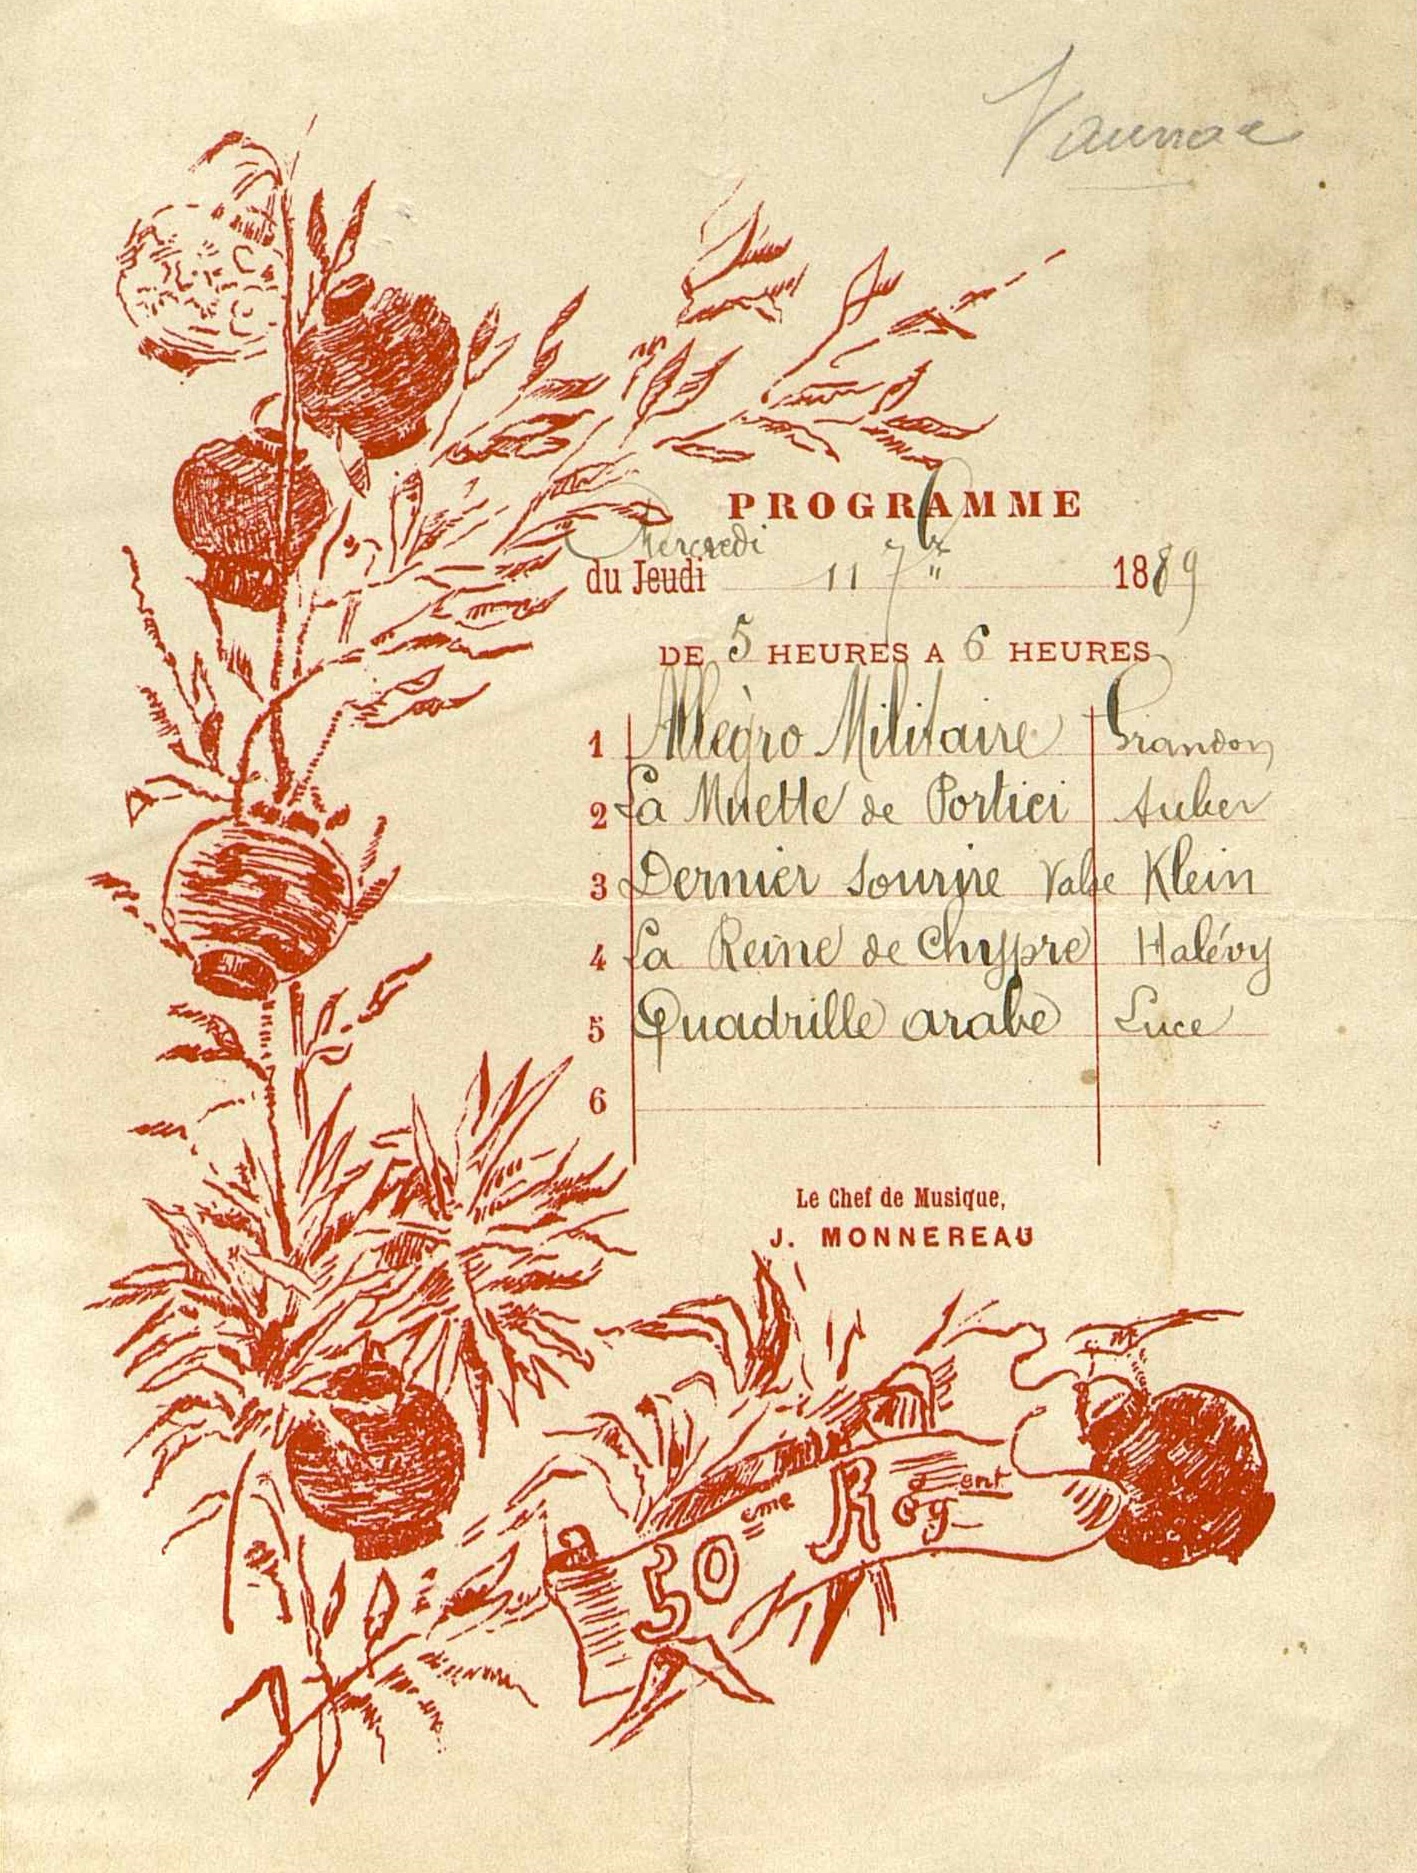 PROGRAMME
Mercredi
du Jeudi 11 7bre 1889
DE 5 HEURES A 6 HEURES
1 Allegro Militaire Grandon
2 La Muette de Portici Auber
3 Dernier Sourire Valse Klein
4 La Reine de Chypre Halévy
5 Quadrille arabe Luce
6
Le Chef de Musique,
J. MONNEREAU
50eme Regent